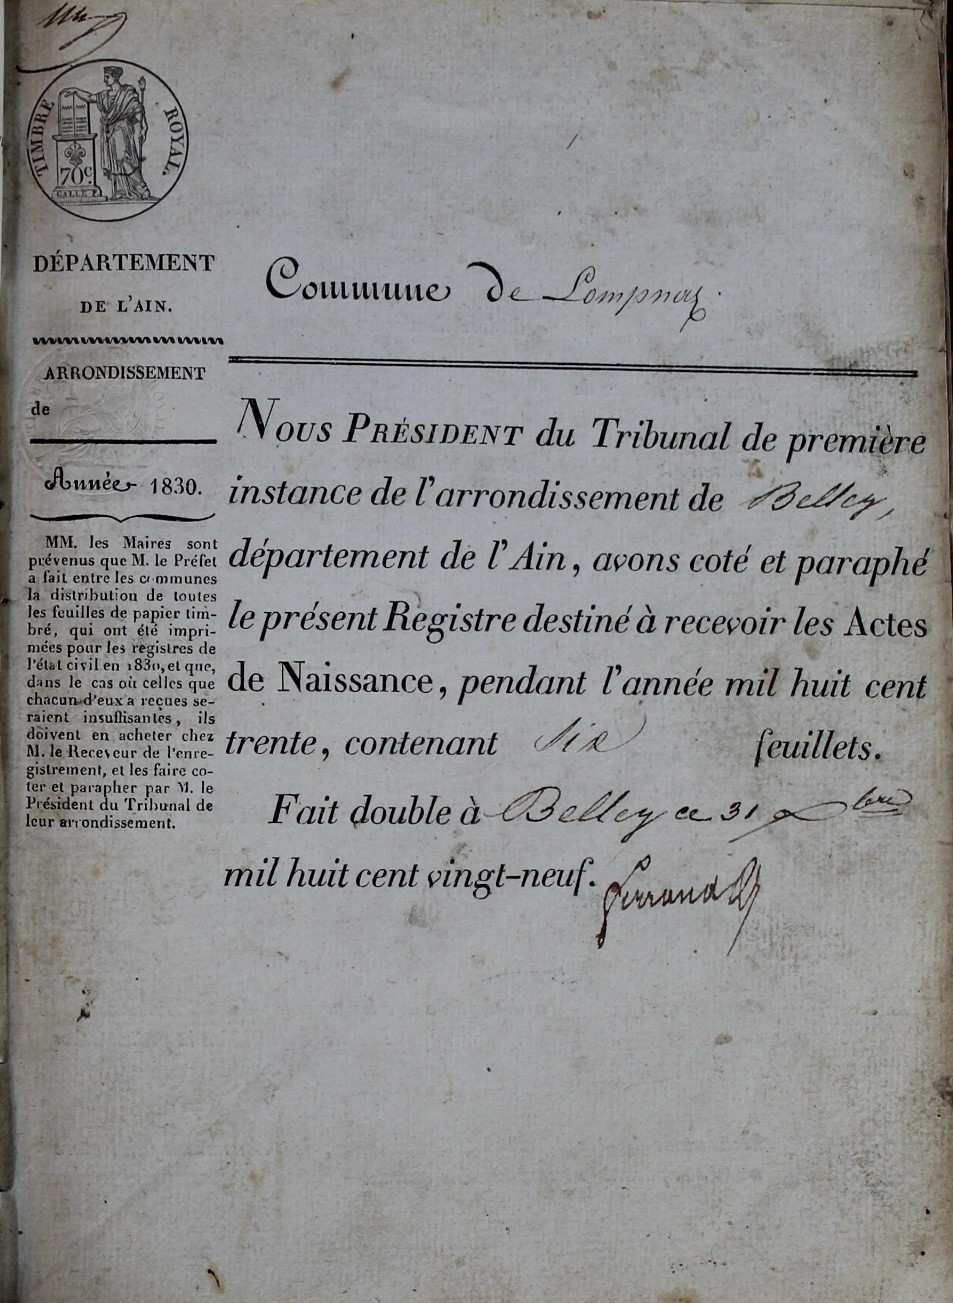 TIMBRE ROYAL.
70c.
DÉPARTEMENT
DE L'AIN.
ARRONDISSEMENT
de
Année 1830.
MM. les Maires sont
prévenus que M. le Préfet
a fait entre les communes
la distribution de toutes
les feuilles de papier tim-
bré, qui ont été impri-
mées pour les registres de
l'état civil en 1830, et que,
dans le cas où celles que
chacun d'eux a reçues se-
raient insuffisantes, ils
doivent en acheter chez
M. le Receveur de l'enre-
gistrement, et les faire co-
ter et parapher par M. le
Président du Tribunal de
leur arrondissement.
Commune de Lompnaz.
NOUS PRÉSIDENT du Tribunal de première
instance de l'arrondissement de Belley,
département de l'Ain, avons coté et paraphé
le présent Registre destiné à recevoir les Actes
de Naissance, pendant l'année mil huit cent
trente, contenant six feuillets.
Fait double à Belley ce 31 xbre
mil huit cent vingt-neuf.